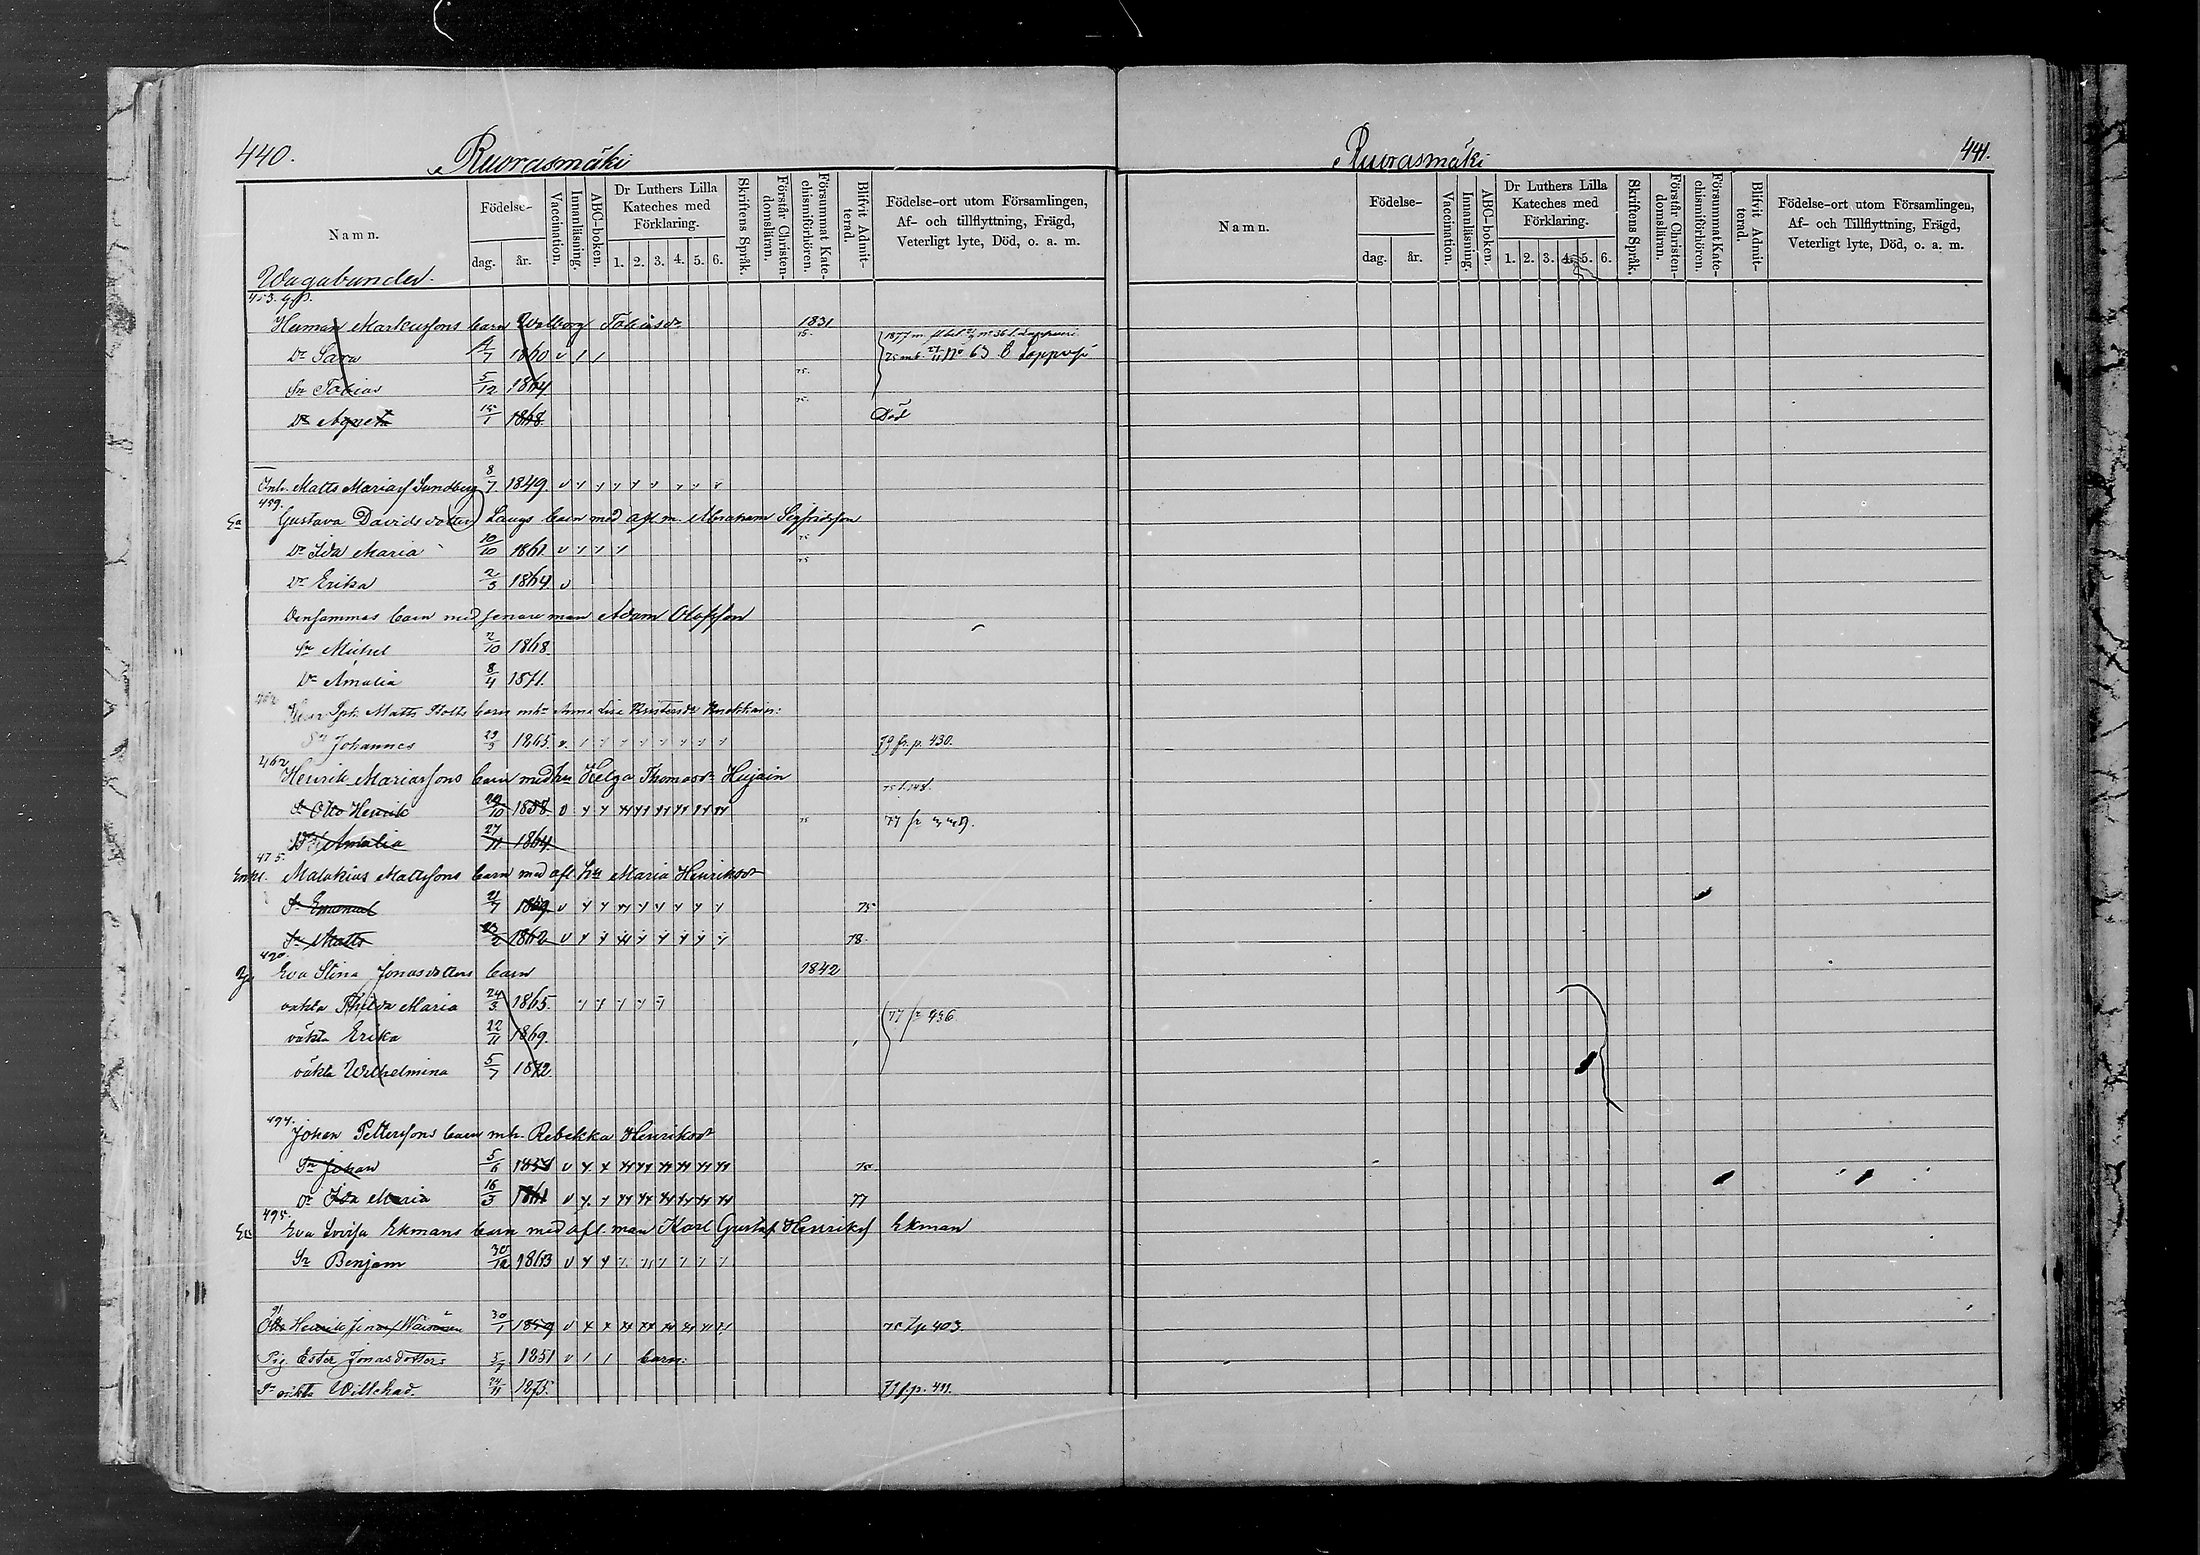 440.
Ruorasmäki
Namn.
Födelse-
dag.
år.
Vaccination.
Innanläsning.
ABC-boken.
Dr Luthers Lilla
Kateches med
Förklaring.
1. 2. 3. 4. 5. 6.
Skriftens Språk.
Förstår Christen-
domsläran.
Försummat Kate-
chismiförhören.
Blifvit Admit-
terad.
Födelse-ort utom Församlingen,
Af- och tillflyttning, Frägd,
Veterligt lyte, Död, o. a. m.
Wagabunder.
453.
Herman Markussons barn Walborg Tobiasdr 1831
Dr Sara 1860 v 1 1 No 63
Sn Tobias 5/12 1864
Dr Agneta 15/1 1868 Död
Inh. Matts Mariass Sundberg 8/7 1849. v
459.
Ea Gustava Davidsdotter Laugs barn med afl. m. Abraham Sigfridsson
Dr Ida Maria 10/10 1861. v
Dr Erika 2/3 1864. v
Densammas barn med senare man Adam Olofsson
Sn Michel 2/10 1868.
Dr Amalia 8/4 1871.
Matts barn Anna Lisa
Sn Johannes 29/3 1865. v. 79 fr. p. 430.
462
Henrik Mariassons barn med hu Helga Thomasdr Hujain
Sn Otto Henrik 29/10 1858. v
Dr Amalia 27/11 1864.
475.
Enkl. Malakias Mattssons barn med afl. hu Maria Henriksdr
Sn Emanuel 21/7 1859 v 75
Sn Matts 23/2 1862 v 78.
490.
Eva Stina Jonasdotters barn 1842
oäkta Maria 24/3 1865.
oäkta Erika 22/11 1869. 77 fr 436
oäkta Wilhelmina 5/7 1872.
494.
Johan Petterssons barn m h. Rebekka Henriksdr
Sn Johan 5/6 v 75
Dr Ida Maria 16/3 1861 v 77
495.
Ea Eva Lovisa Ekmans barn med afl. man Karl Gustaf Henrikss Ekman
Sn Benjam 30/12 1863 v
Otto Henrik Jonass 30/1 1859 v 403
Pig. Ester Jonasdotters 5/7 1851 v 1 1 barn:
Sn oäkta Willehad 24/11 1875.
Ruorasmäki
441.
Namn.
Födelse-
dag.
år.
Vaccination.
Innanläsning.
ABC-boken.
Dr Luthers Lilla
Kateches med
Förklaring.
1. 2. 3. 4. 5. 6.
Skriftens Språk.
Förstår Christen-
domsläran.
Försummat Kate-
chismiförhören.
Blifvit Admit-
terad.
Födelse-ort utom Församlingen,
Af- och Tillflyttning, Frägd,
Veterligt lyte, Död, o. a. m.